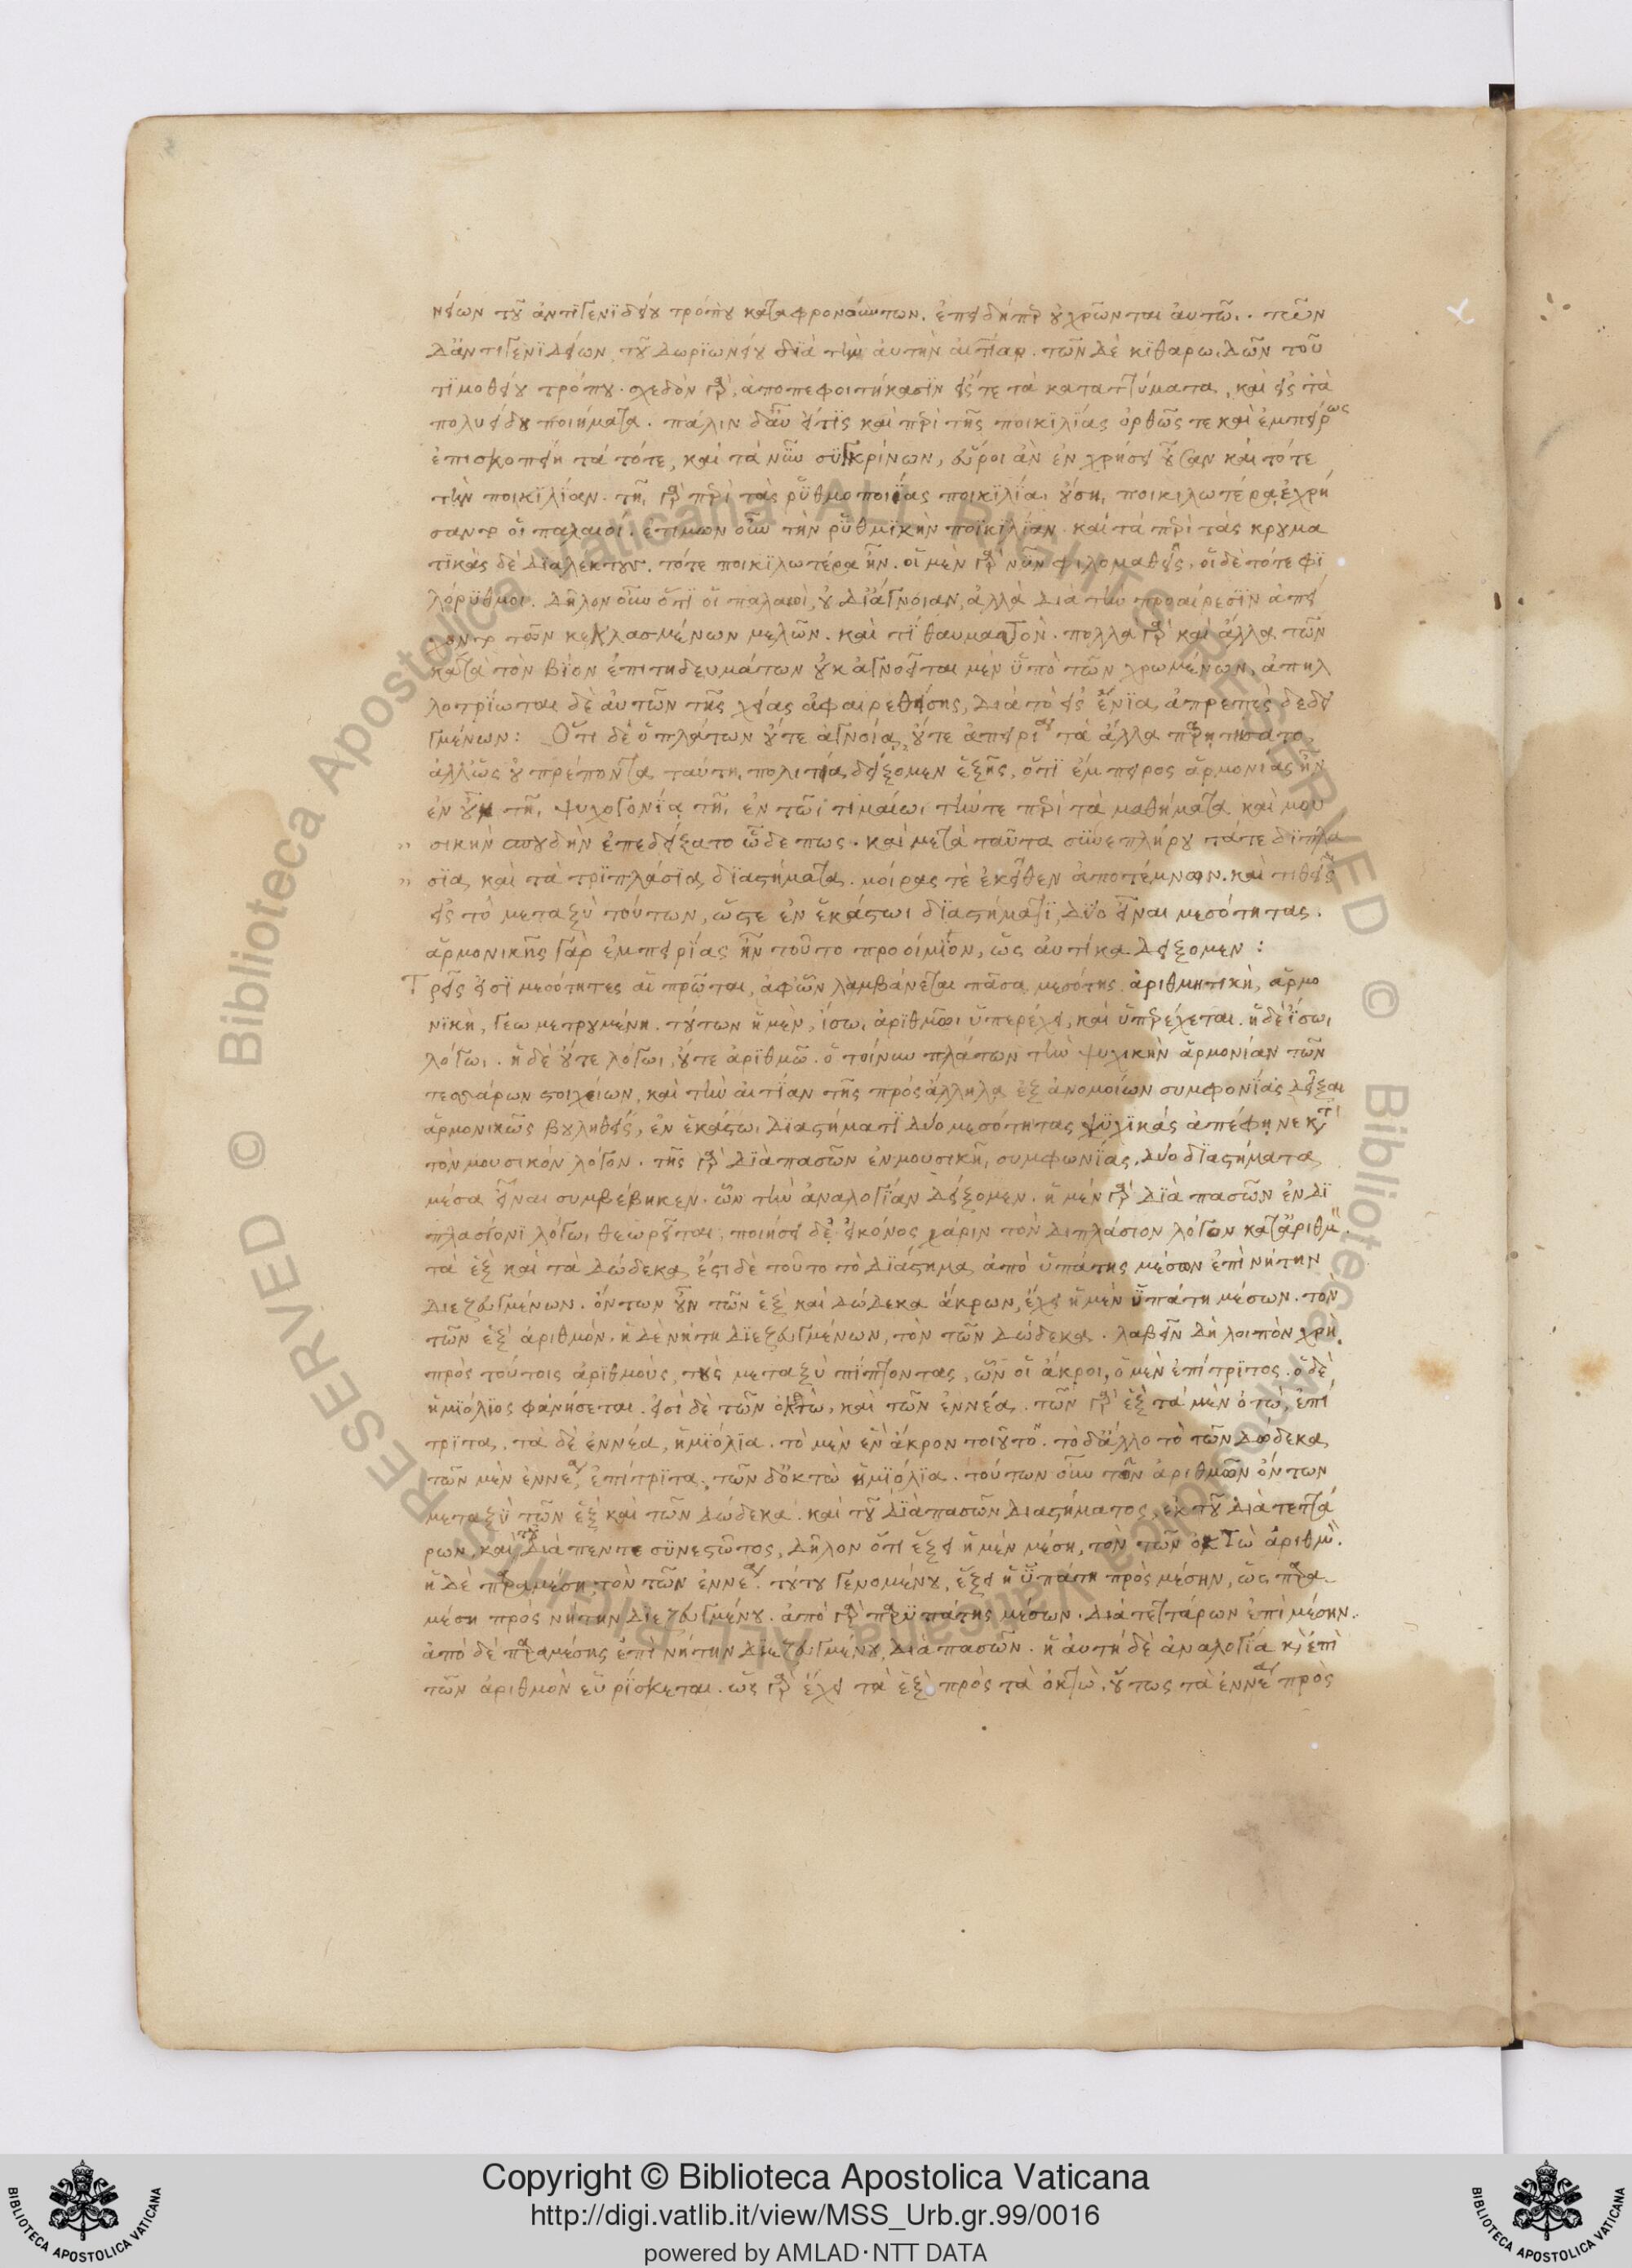 νείων τοῦ ἀντιγενιδείου τρόπου καταφρονούντων. ἐπειδήπερ οὐ χρῶνται αὐτῶι. τῶν
δ' ἀντιγενιδείων, τοῦ δωριωνείου διὰ τὴν αὐτὴν αἰτίαν. τῶν δὲ κιθαρωιδῶν τοῦ
τιμοθείου τρόπου. σχεδὸν γὰρ, ἀποπεφοιτήκασϊν εἴς τε τὰ κατατύματα, καὶ εἰς τὰ
πολυείδου ποιήματα. πάλιν δ' αὖ εἴτις καὶ περὶ τῆς ποικιλίας ὀρθῶς τε καὶ ἐμπείρως
ἐπισκοπείη τά τότε, καὶ τὰ νῦν συγκρίνων, εὕροι ἂν ἐν χρήσει οὖσαν καὶ τότε
τὴν ποικιλίαν. τῆι γὰρ περὶ τὰς ῥυθμοποιίας ποικιλίαι οὔσηι ποικιλωτέραι ἐχρή
σαντο οἱ παλαιοί. ἐτίμων οὖν τὴν ῥυθμικὴν ποικιλίαν. καὶ τὰ περὶ τὰς κρουμα
τικὰς δὲ διαλέκτους. τότε ποικιλωτέρα ἦν. οἱ μὲν γὰρ νῦν φιλομαθεῖς, οἱ δὲ τότε φι
λόρυθμοι. δῆλον οὖν ὅτι οἱ παλαιοὶ, οὐ δι' ἄγνοιαν, ἀλλὰ διὰ τὴν προαίρεσιν ἀπεί
χοντο τῶν κεκλασμένων μελῶν. καὶ τί θαυμαστὸν. πολλὰ γὰρ καὶ ἄλλα τῶν
κατὰ τὸν βίον ἐπιτηδευμάτων οὐκ ἀγνοεῖται μὲν ὑπὸ τῶν χρωμένων, ἀπηλ
λοτρίωται δὲ αὐτῶν τῆς χρείας ἀφαιρεθείσης, διὰ τὸ εἰς ἔνια ἀπρεπὲς δεδει
γμένων: Ὅτι δὲ ὁ πλάτων οὔτε ἀγνοίαι, οὔτε ἀπειρίαι τὰ ἄλλα παρηιτήσατο,
ἀλλ' ὡς οὐ πρέποντα ταύτηι πολιτείαι δείξομεν ἑξῆς, ὅτι ἔμπειρος ἁρμονίας ἦν
ἐν οὖν τῆι ψυχογονίαι τῆι ἐν τῶι τιμαίωι τήν τε περὶ τὰ μαθήματα καὶ μου
σικὴν σπουδὴν ἐπεδείξατο ὧδε πως. καὶ μετὰ ταῦτα συνεπλήρου τά τε διπλα
σία καὶ τὰ τριπλάσια διαστήματα. μοίρας τὲ ἐκεῖθεν ἀποτέμνων. καὶ τιθεὶς
εἰς τὸ μεταξὺ τούτων, ὥστε ἐν ἑκάστωι διαστήματι, δύο εἶναι μεσότητας.
ἁρμονικῆς γὰρ ἐμπειρίας ἦν τοῦτο προοίμιον, ὡς αὐτίκα δείξομεν:
Τρεῖς εἰσὶ μεσότητες αἱ πρῶται, ἀφ' ὧν λαμβάνεται πᾶσα μεσότης. ἀριθμητικὴ, ἁρμο
νικὴ, γεωμετρουμένη. τούτων ἡ μὲν, ἴσωι ἀριθμῶι ὑπερέχει, καὶ ὑπερέχεται. ἡ δὲ ἴσωι
λόγωι. ἡ δὲ οὔτε λόγωι, οὔτε ἀριθμῶ. ὁ τοίνυν πλάτων τὴν ψυχικὴν ἁρμονίαν τῶν
τεσσάρων στοιχείων, καὶ τὴν αἰτίαν τῆς πρὸς ἄλληλα ἐξ ἀνομοίων συμφονίας δεῖξαι
ἁρμονικῶς βουληθεὶς, ἐν ἑκάστωι διαστήματι δύο μεσότητας ψυχικάς ἀπέφηνε κατὰ
τὸν μουσικὸν λόγον. τῆς γὰρ διὰ πασῶν ἐν μουσικῆι συμφωνίας, δύο διαστήματα
μέσα εἶναι συμβέβηκεν. ὧν τὴν ἀναλογίαν δείξομεν. ἡ μὲν γὰρ διὰ πασῶν ἐν δι
πλασίονι λόγωι θεωρεῖται. ποιήσει δὲ εἰκόνος χάριν τὸν διπλάσιον λόγον κατ' ἀριθμὸν.
τὰ ἓξ καὶ τὰ δώδεκα, ἔστι δὲ τοῦτο τὸ διάστημα ἀπὸ ὑπάτης μέσων ἐπὶ νήτην
διεζευγμένων. ὄντων οὖν τῶν ἓξ καὶ δώδεκα ἄκρων, ἔχει ἡ μὲν ὑπάτη μέσων. τὸν
τῶν ἓξ ἀριθμὸν. ἡ δὲ νήτη διεζευγμένων, τὸν τῶν δώδεκα. λαβεῖν δὴ λοιπὸν χρὴ
πρὸς τούτοις ἀριθμοὺς, τοὺς μεταξὺ πίπτοντας, ὧν οἱ ἄκροι, ὁ μὲν ἐπίτριτος. ὁ δὲ,
ἡμιόλιος φανήσεται. εἰσὶ δὲ τῶν ὀκτώ, καὶ τῶν ἐννέα. τῶν γὰρ ἓξ τὰ μὲν ὀτώ, ἐπί
τριτα. τὰ δὲ ἐννέα, ἡμιόλια. τὸ μὲν ἓν ἄκρον τοιοῦτον. τὸ δ' ἄλλο τὸ τῶν δώδεκα
τῶν μὲν ἐννέα, ἐπίτριτα. τῶν δ' ὀκτὼ ἡμιόλια. τούτων οὖν τῶν ἀριθμῶν ὄντων
μεταξὺ τῶν ἓξ καὶ τῶν δώδεκα. καὶ τοῦ διὰ πασῶν διαστήματος, ἐκ τοῦ διὰ τεττά
ρων, καὶ τοῦ διὰ πέντε συνεστῶτος, δῆλον ὅτι ἕξει ἡ μὲν μέση, τὸν τῶν ὀκτὼ ἀριθμὸν.
ἡ δὲ παραμέση, τὸν τῶν ἐννέα. τούτου γενομένου, ἕξει ἡ ὑπάτη πρὸς μέσην, ὡς παρα
μέση πρὸς νήτην διεζευγμένου. ἀπὸ γὰρ παρυπάτης μέσων. διὰ τεττάρων ἐπὶ μέσην.
ἀπὸ δὲ παραμέσης ἐπὶ νήτην διεζευγμένου, διὰ πασῶν. ἡ αὐτὴ δὲ ἀναλογία καὶ ἐπὶ
τῶν ἀριθμὸν εὑρίσκεται. ὡς γὰρ ἔχει τὰ ἓξ πρὸς τὰ ὀκτὼ, οὕτως τὰ ἐννέα πρὸς
Copyright © Biblioteca Apostolica Vaticana
http://digi.vatlib.it/view/MSS_Urb.gr.99/0016
powered by AMLAD·NTT DATA
BIBLIOTECA APOSTOLICA VATICANA
BIBLIOTECA APOSTOLICA VATICANA